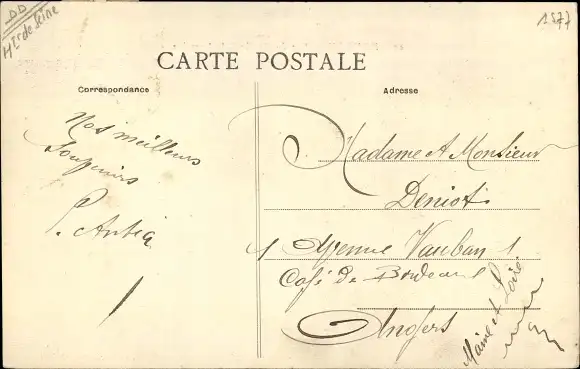 DD
Hts de Seine
1577
CARTE POSTALE
Correspondance
Adresse
Nos meilleurs
Souvenirs
Madame et Monsieur
Deniot
1 Avenue Vauban 1
Café de Bordeaux
Angers
Maine et Loire